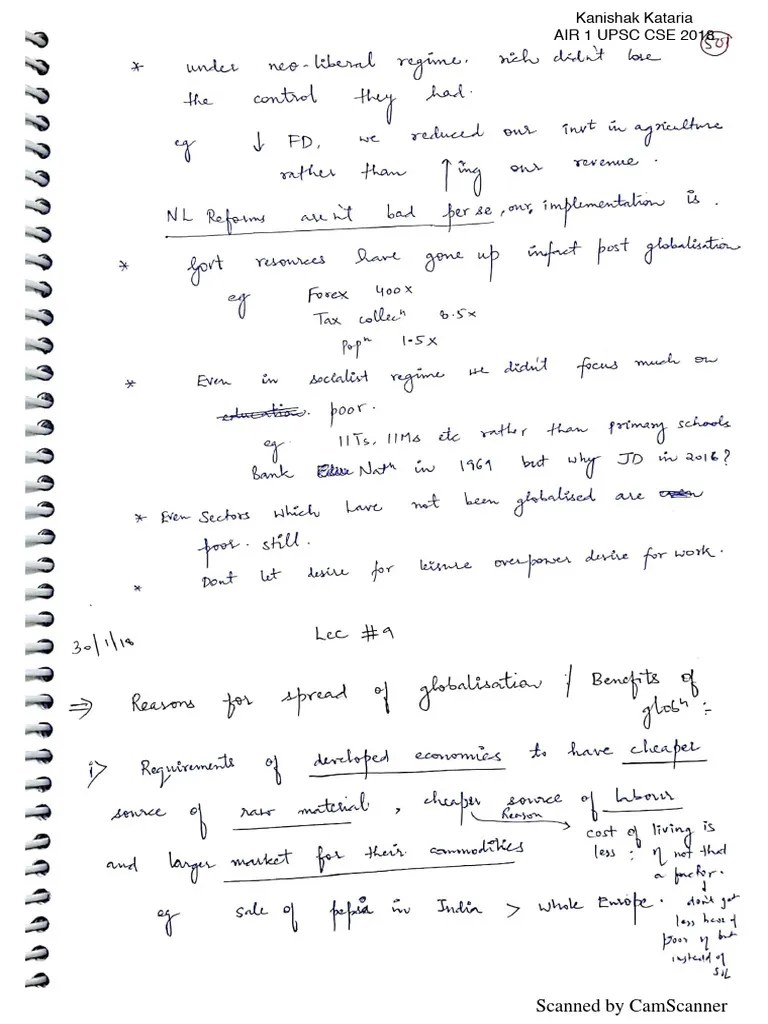 Kanishak Kataria
AIR 1 UPSC CSE 2018
501
* under neo-liberal regime. rich didn't lose
the control they had.
eg ↓ FD, we reduced our invt in agriculture
rather than ↑ing our revenue.
NL Reforms aren't bad per se, our implementation is.
* Govt resources have gone up infact post globalisation
eg Forex 400x
Tax collecⁿ 8.5x
popⁿ 1.5x
* Even in socialist regime we didn't focus much on
education. poor.
eg. IITs, IIMs etc rather than primary schools
Bank Natⁿ in 1969 but why JD in 2016?
* Even Sectors which have not been globalised are even
poor. still.
* Dont let desire for leisure overpower desire for work.
30/1/18 Lec #9
⇒ Reasons for spread of globalisation / Benefits of
globⁿ :-
i> Requirements of developed economics to have cheaper
source of raw material, cheaper source of labour
Reason
cost of living is
and larger market for their commodities
less : not that
a factor.
eg sale of pepsi in India > whole Europe.
don't get
less bcos of
poor but
instead of